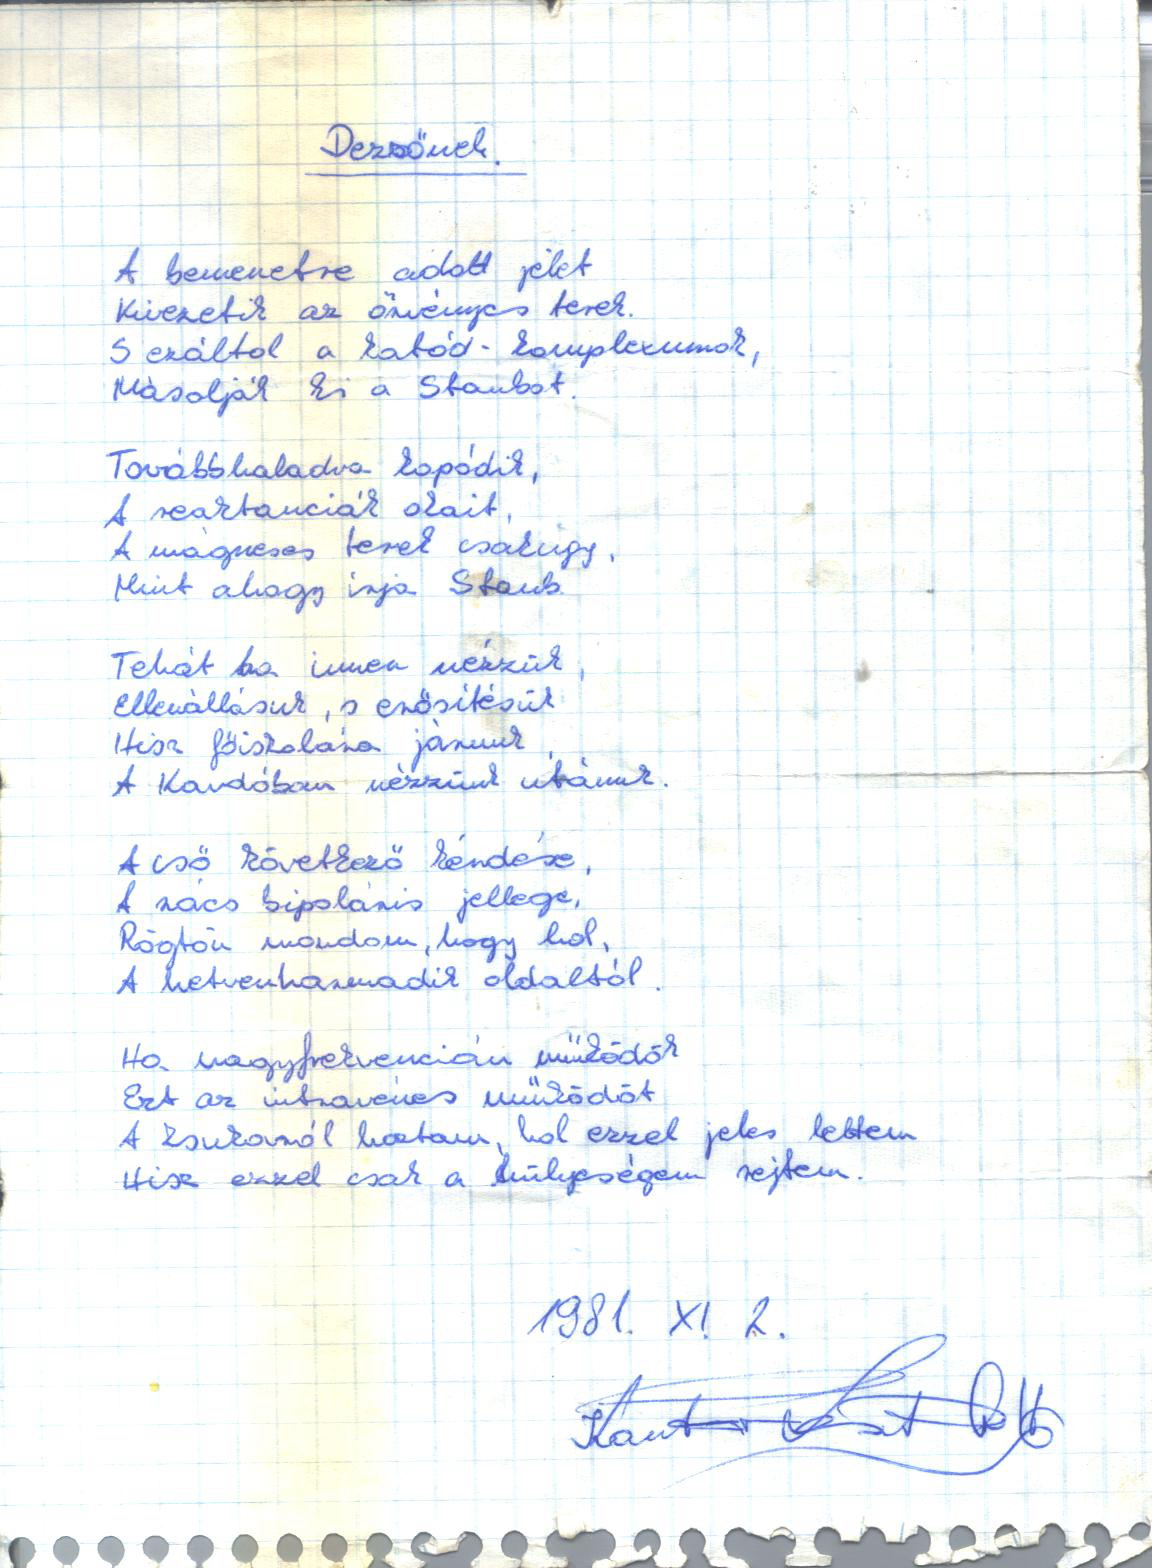 Dezsőnek.
A bemenetre adott jelet
Kivezetik az örvényes terek.
S ezáltol a katód-komplexumok,
Másolják ki a Staubot.
Továbbhaladva kapódik,
A reaktanciák okait,
A mágneses terek csakúgy,
Mint ahogy írja Staub.
Tehát ha innen nézzük,
Ellenállásuk, s erősítésük
Hisz főiskolára járunk,
A Kandóban nézzünk utánuk.
A cső következő kérdése,
A rács bipoláris jellege,
Rögtön mondom, hogy hol,
A hetvenharmadik oldaltól.
Ha nagyfrekvencián működök
Ezt az intravénás működőt
A zsukaról hoztam, hol ezzel jeles lettem
Hisz ezzel csak a hülyeségem rejtem.
1981. XI. 2.